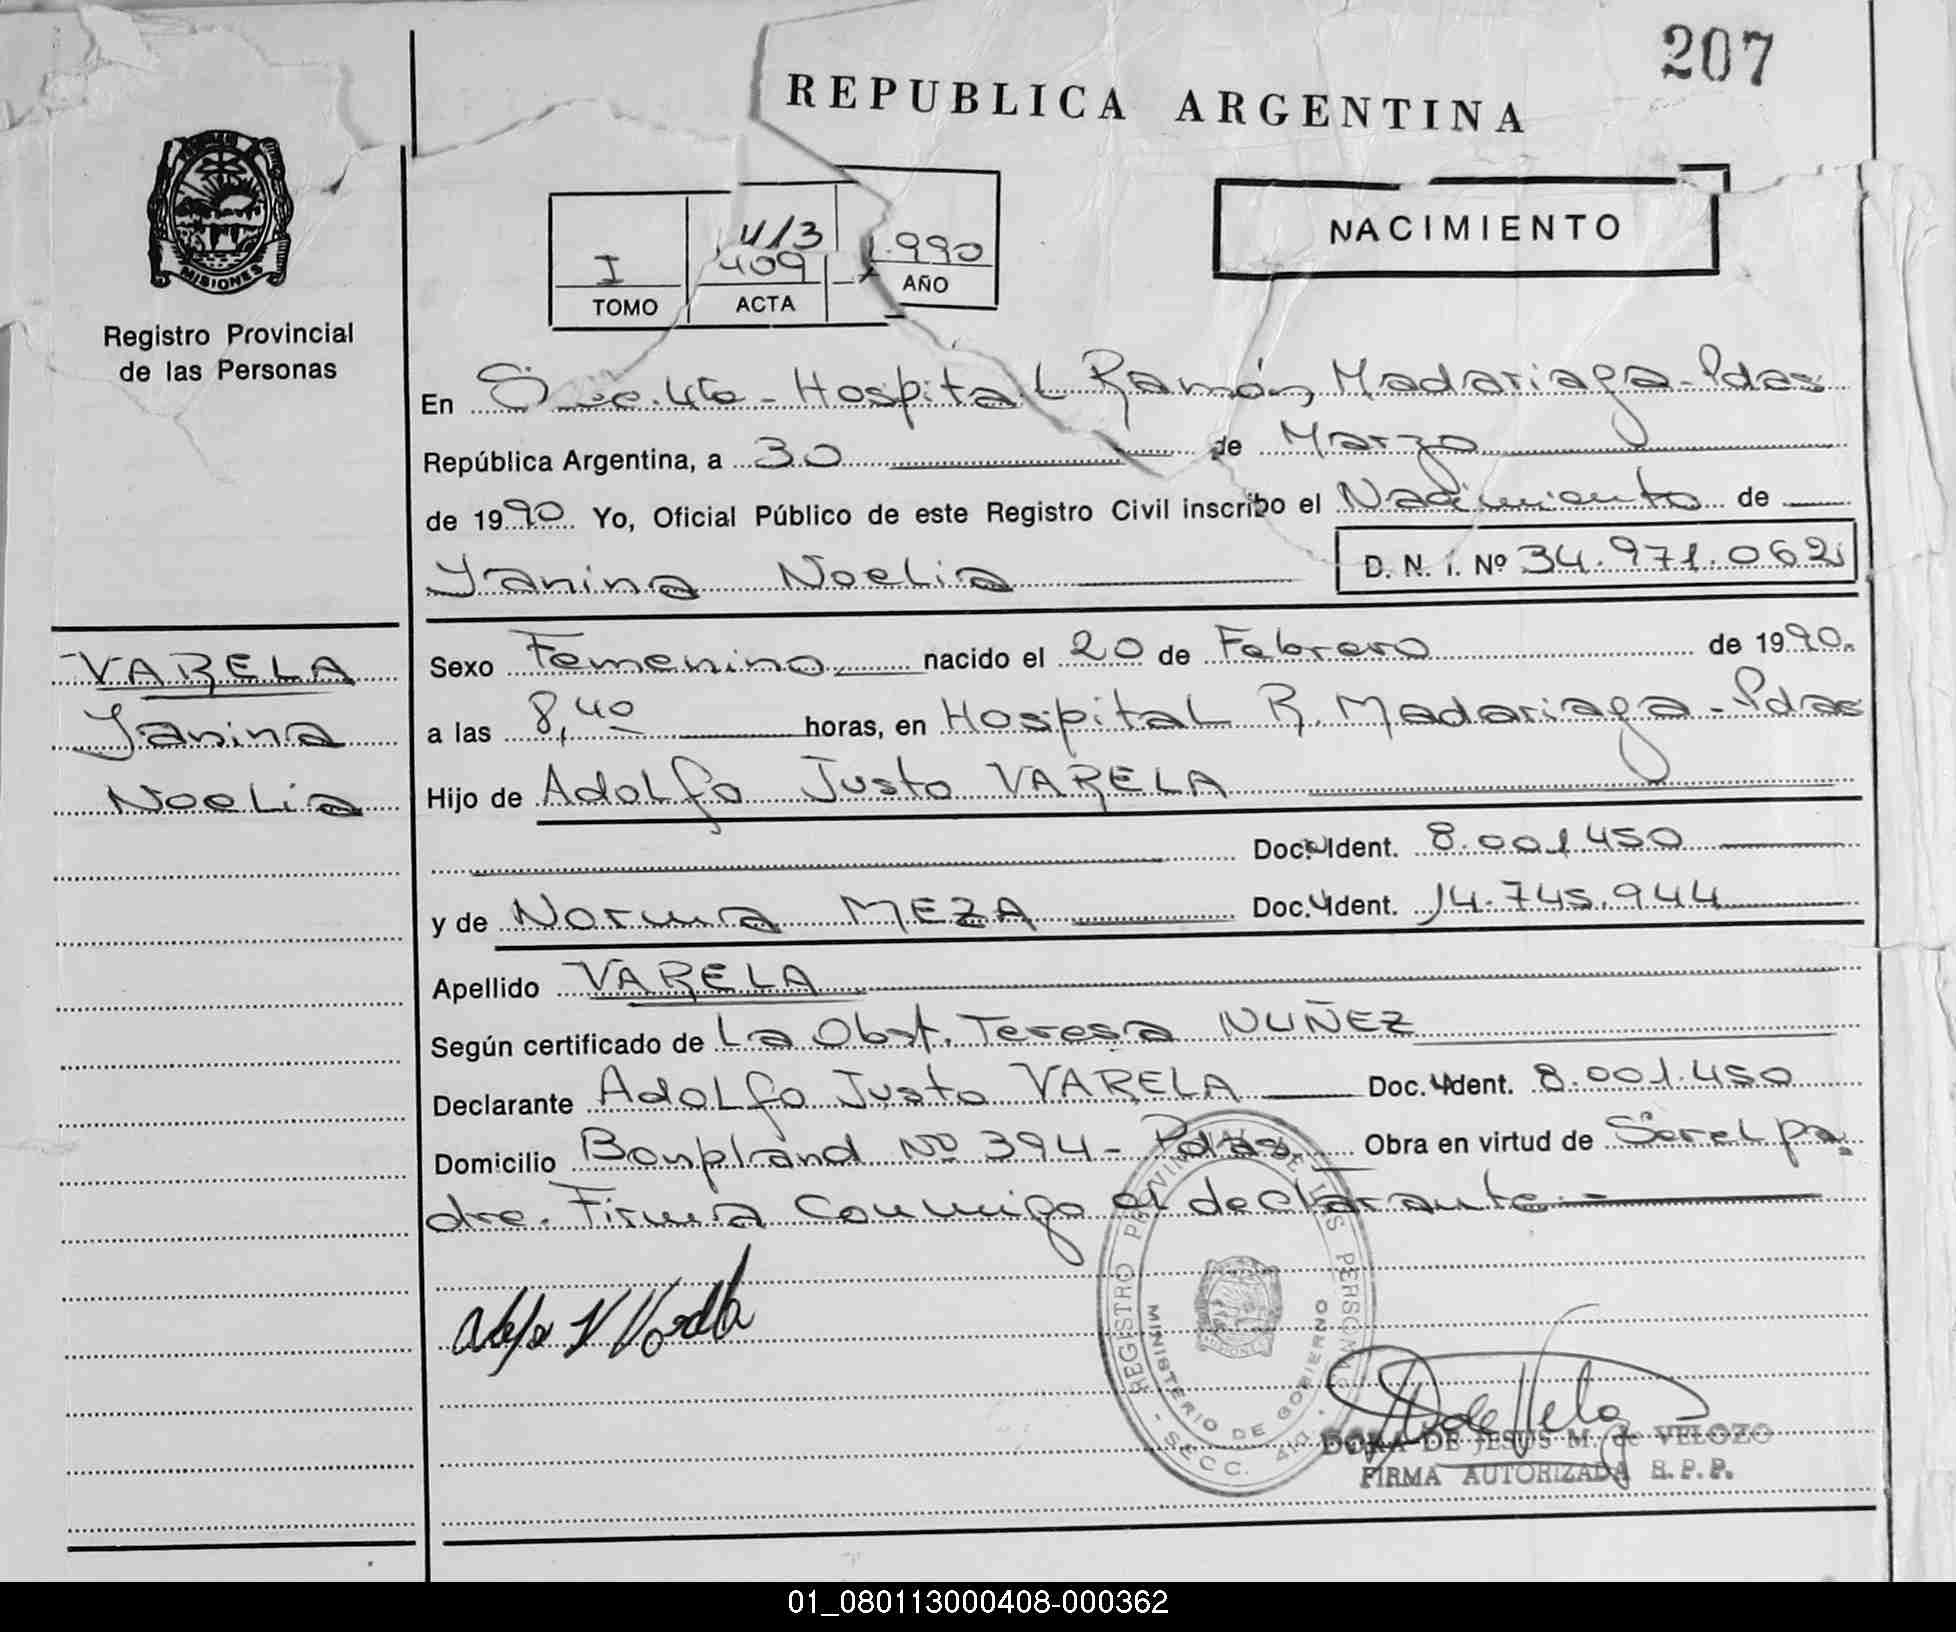 207
REPUBLICA ARGENTINA
MISIONES
Registro Provincial
de las Personas
I
TOMO
4/3
409
ACTA
1.990
AÑO
NACIMIENTO
En Secc. 4ta - Hospital Ramón Madariaga - Pdas
República Argentina, a 30 de Marzo
de 1990 Yo, Oficial Público de este Registro Civil inscribo el Nacimiento de
Yanina Noelia
D. N. I. Nº 34.971.062
VARELA
Yanina
Noelia
Sexo Femenino nacido el 20 de Febrero de 1990.
a las 8,40 horas, en Hospital R. Madariaga - Pdas
Hijo de Adolfo Justo VARELA
Doc. Ident. 8.001.450
y de Norma MEZA Doc. Ident. 14.745.944
Apellido VARELA
Según certificado de La Obst. Teresa NUÑEZ
Declarante Adolfo Justo VARELA Doc. Ident. 8.001.450
Domicilio Bonpland Nº 394 - Pdas. Obra en virtud de Ser el pa
dre. Firma Conmigo el declarante.-
REGISTRO PROVINCIAL DE LAS PERSONAS
MINISTERIO DE GOBIERNO
MISIONES
- SECC. 4ta -
DORA DE JESUS M. de VELOZO
FIRMA AUTORIZADA R.P.P.
01_080113000408-000362